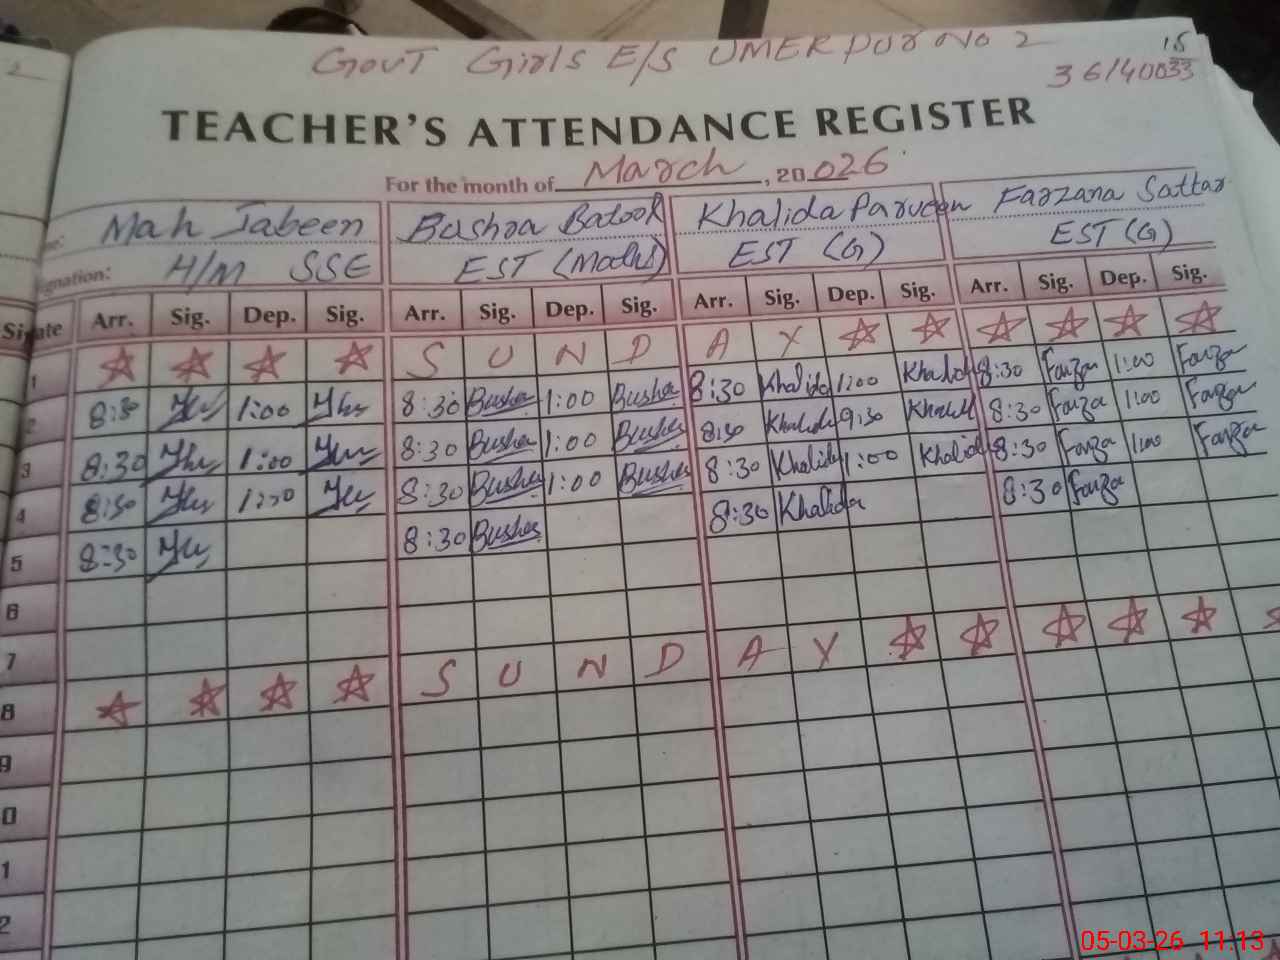 2
GovT Girls E/S UMERPUR No 2
15
36/40033
TEACHER'S ATTENDANCE REGISTER
For the month of March, 20026
Mah Jabeen Bushra Batool Khalida Parveen Farzana Sattar
gnation: H/M SSE EST (Maths) EST (G) EST (G)
Sig ate Arr. Sig. Dep. Sig. Arr. Sig. Dep. Sig. Arr. Sig. Dep. Sig. Arr. Sig. Dep. Sig.
1 S U N D A Y
2 8:30 1:00 8:30 Bushra 1:00 Bushra 8:30 Khalida 1:00 Khalida 8:30 Farza 1:00 Farza
3 8:30 1:00 8:30 Bushra 1:00 Bushra 8:30 Khalida 9:30 Khalid 8:30 Farza 1:00 Farza
4 8:30 1:00 8:30 Bushra 1:00 Bushra 8:30 Khalida 1:00 Khalid 8:30 Farza 1:00 Farza
5 8:30 8:30 Bushra 8:30 Khalida 8:30 Farza
6
7
8 S U N D A Y
9
0
1
2
05-03-26 11:13